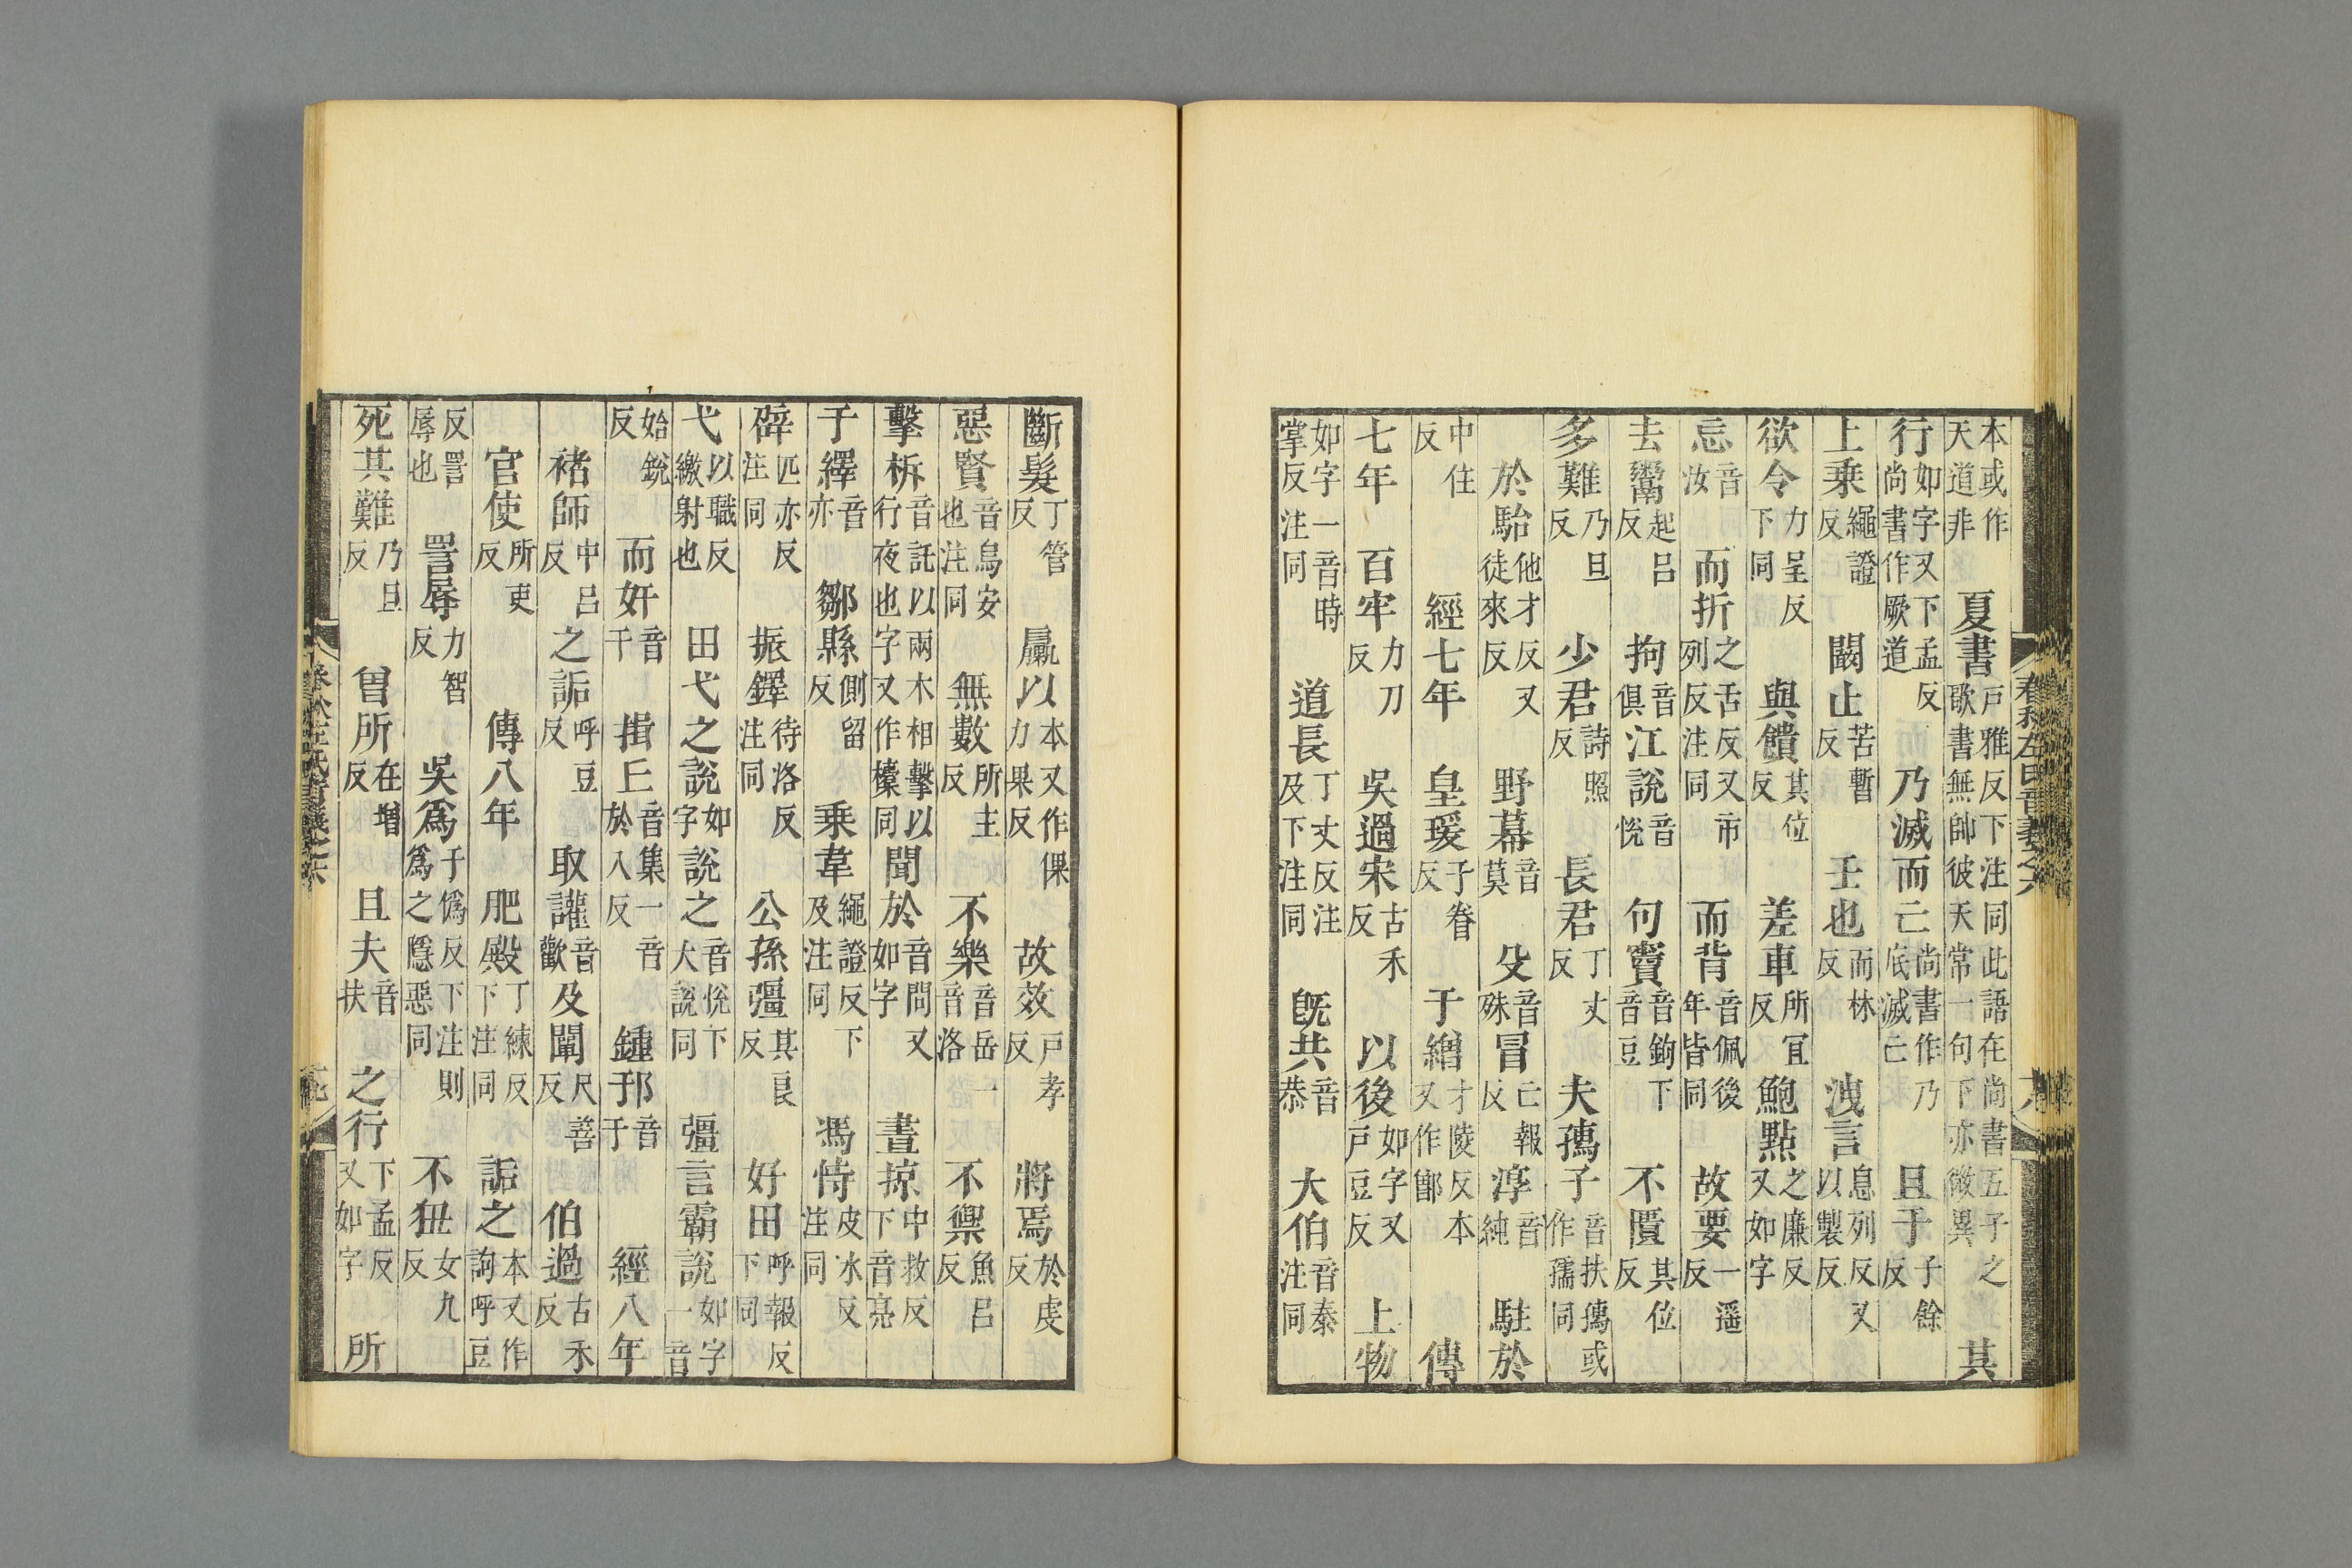 本或作天道非　夏書戶雅反下注同此語在尚書五子之歌書無帥彼天常一句下亦微異　其
行如字又下孟反尚書作厥道　乃滅而亡尚書作乃底滅亡　且于子餘反
上乘繩證反　闞止苦暫反　壬也而林反　洩言息列反又以製反
欲令力呈反下同　與饋其位反　差車所宜反　鮑點之廉反又如字
忘音汝　而折之舌反又市列反注同　而背音佩後年皆同　故要一遥反
去鬻起呂反　拘音俱江說音悅　句竇音鉤下音豆　不匱其位反
多難乃旦反　少君詩照反　長君丁丈反　夫孺子音扶孺或作孺同
於駘他才反又徒來反　野幕音莫　殳音殊冒亡報反　淳音純　駐於
中住反　經七年　皇瑗于眷反　于繒才陵反本又作鄫　傳
七年　百牢力刀反　吳過宋古禾反　以後如字又戶豆反　上物
如字一音時掌反注同　道長丁丈反注及下注同　既共音恭　大伯音泰注同
春秋左氏音義之六
斷髮丁管反　臝以本又作倮力果反　故效戶孝反　將焉於虔反
惡賢音烏安也注同　無數所主反　不樂音岳一音洛　不禦魚呂反
擊柝音託以兩木相擊以行夜也字又作㯓同　聞於音問又如字　晝掠中救反下音亮
于繹音亦　鄒縣側留反　乘韋繩證反下及注同　馮恃皮冰反注同
僻匹亦反注同　振鐸待洛反注同　公孫彊其良反　好田呼報反下同
弋以職反繳射也　田弋之說如字說之音悅下大說同　彊言霸說如字一音
始銳反　而奸音干　揖丘音集一音於入反　鍾邘音于　經八年
褚師中呂反　之詬呼豆反　取讙音歡及闡尺善反　伯過古禾反
官使所吏反　傳八年　肥殿丁練反下注同　詬之本又作詢呼豆
反詈辱也　詈辱力智反　吳為于偽反下注則為之隱惡同　不狃女九反
死其難乃旦反　曾所在增反　且夫音扶　之行下孟反又如字　所
春秋左氏音義之六